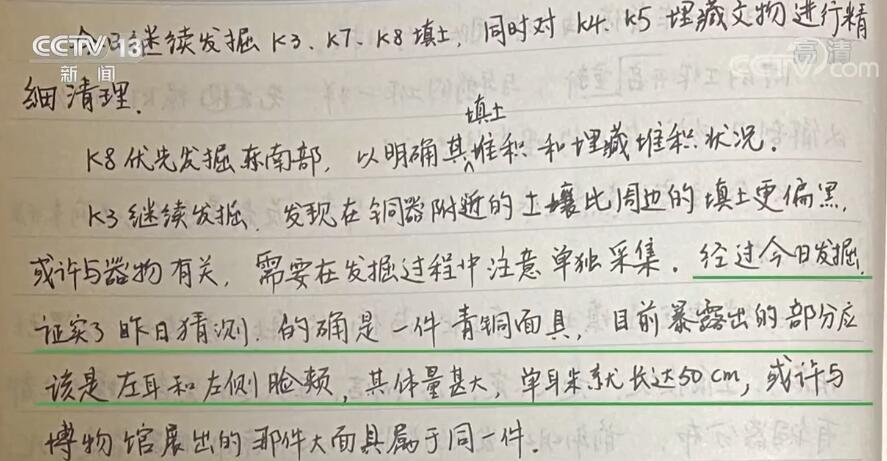 CCTV 13
新闻
高清
今日继续发掘K3、K7、K8填土，同时对K4、K5埋藏文物进行精
细清理。
填土
K8优先发掘东南部，以明确其堆积和埋藏堆积状况。
K3继续发掘，发现在铜器附近的土壤比周边的填土更偏黑，
或许与器物有关，需要在发掘过程中注意单独采集。经过今日发掘，
证实了昨日猜测，的确是一件青铜面具，目前暴露出的部分应
该是左耳和左侧脸颊，其体量甚大，单耳朵就长达50cm，或许与
博物馆展出的那件大面具属于同一件。